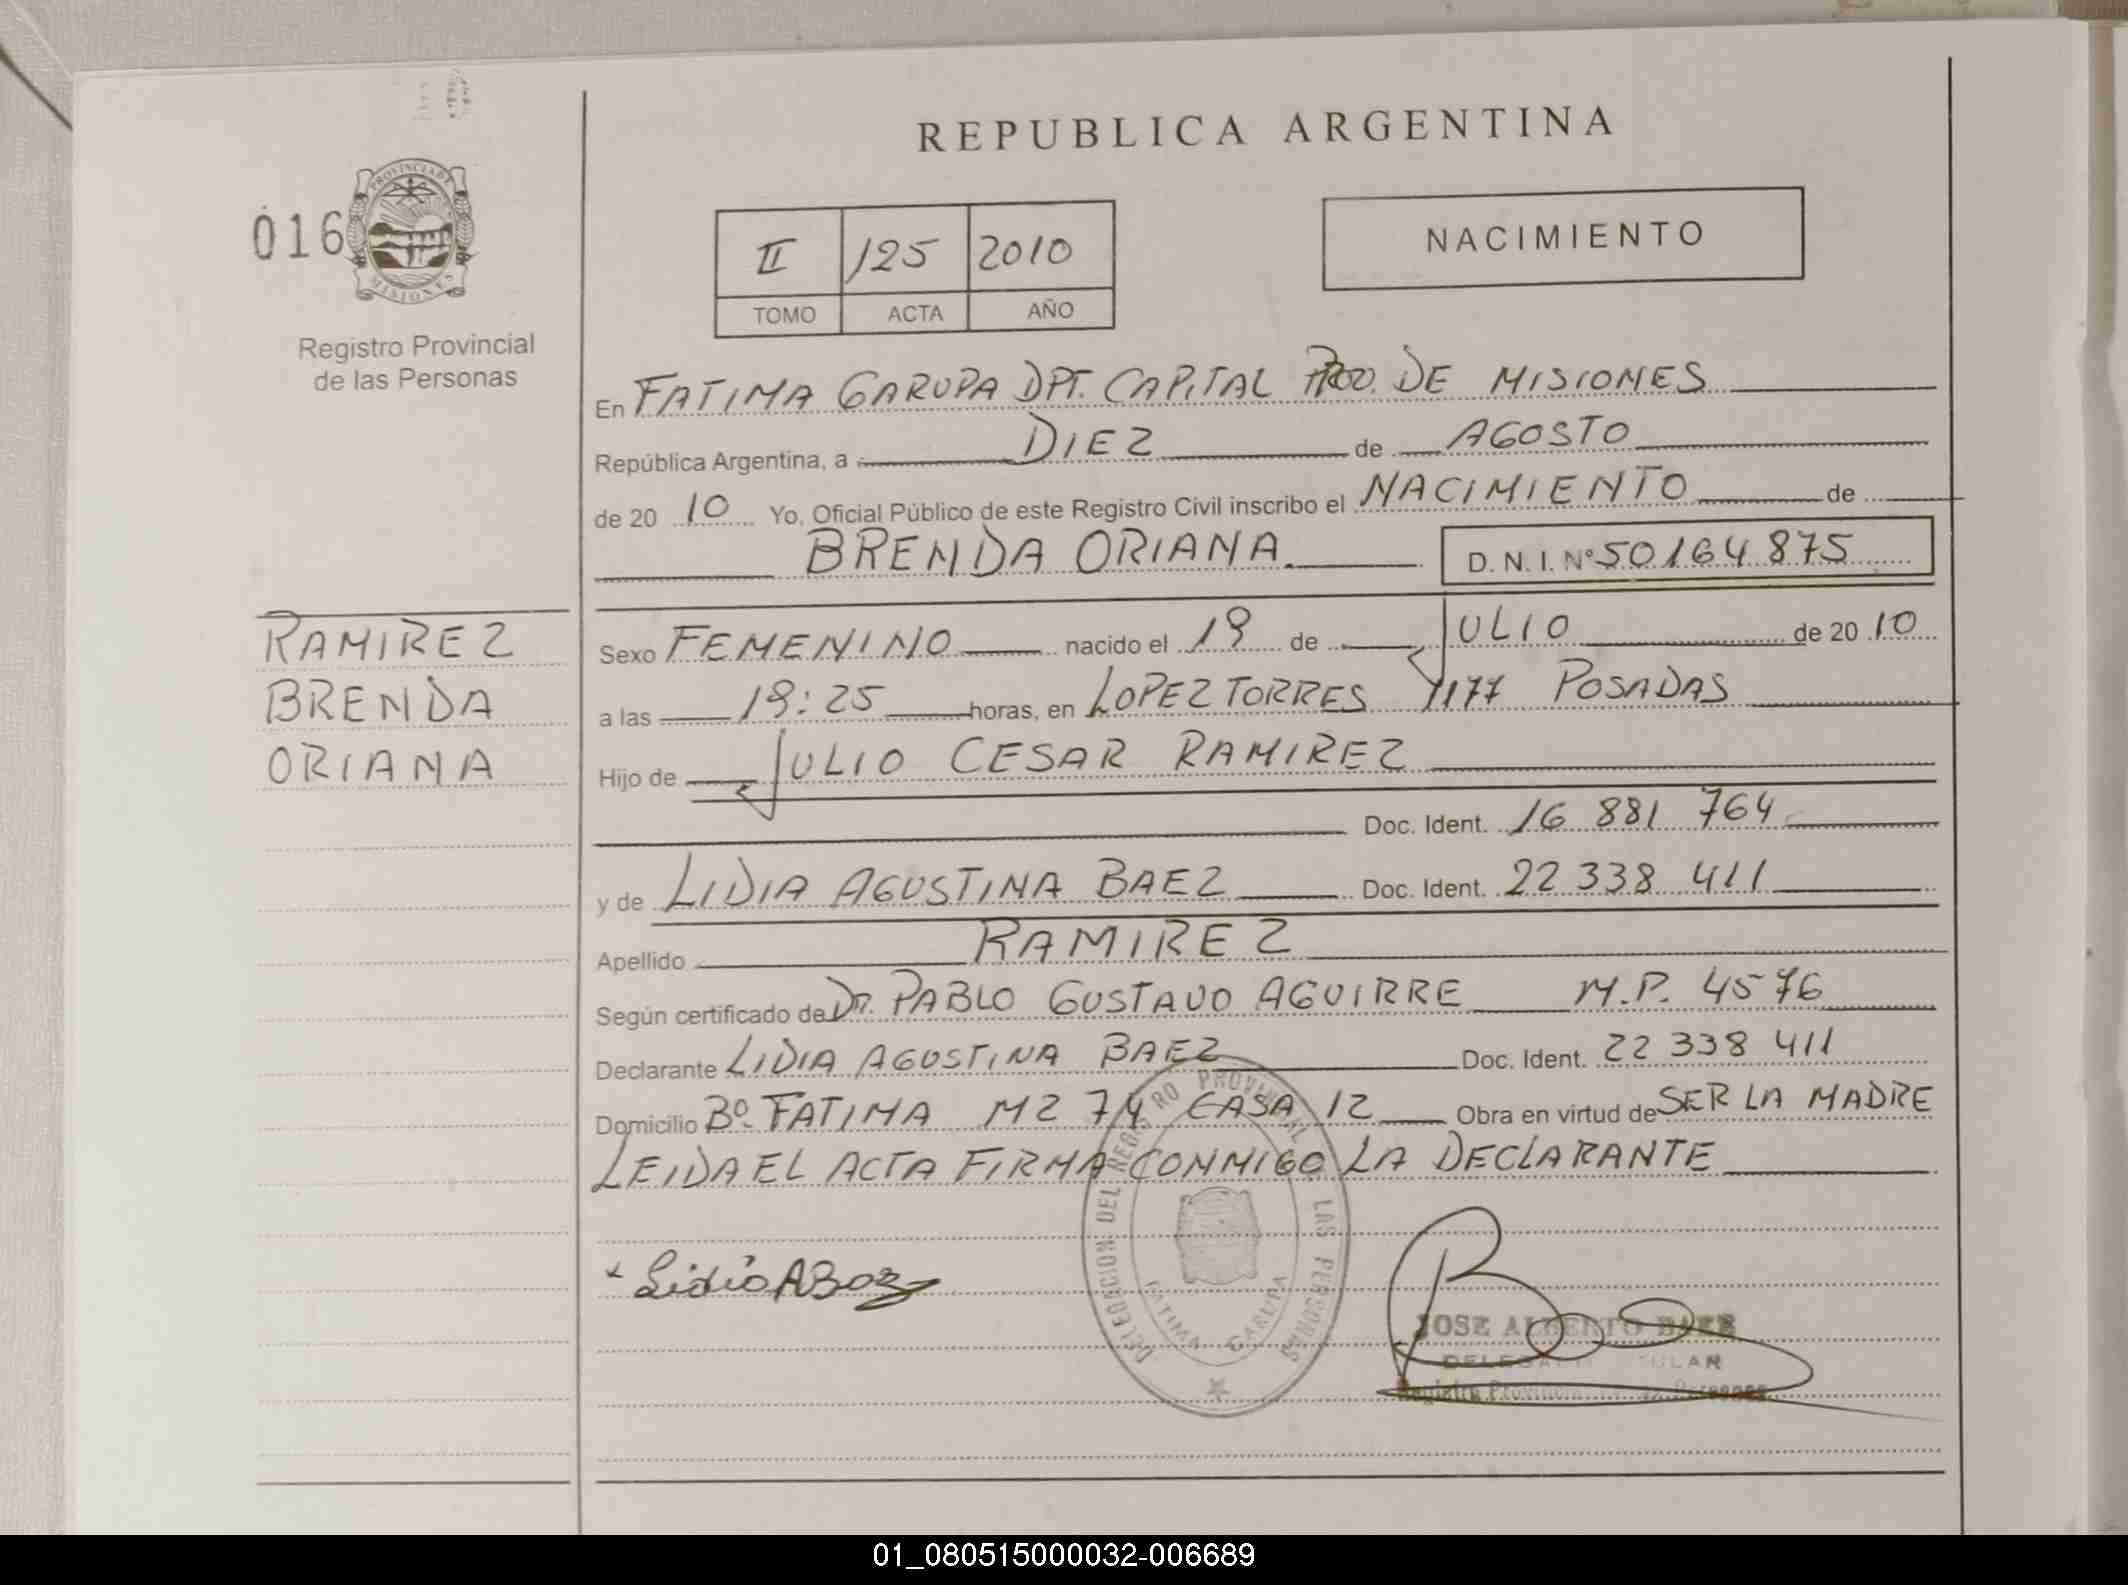 REPUBLICA ARGENTINA
016
PROVINCIA DE MISIONES
Registro Provincial
de las Personas
II 125 2010
TOMO ACTA AÑO
NACIMIENTO
En FATIMA GARUPA DPT. CAPITAL PROV. DE MISIONES
República Argentina, a DIEZ de AGOSTO
de 20 10 Yo, Oficial Público de este Registro Civil inscribo el NACIMIENTO de
BRENDA ORIANA D. N. I. Nº 50164875
RAMIREZ
BRENDA
ORIANA
Sexo FEMENINO nacido el 19 de JULIO de 20 10
a las 19:25 horas, en LOPEZ TORRES 1177 POSADAS
Hijo de JULIO CESAR RAMIREZ
Doc. Ident. 16 881 764
y de LIDIA AGUSTINA BAEZ Doc. Ident. 22 338 411
Apellido RAMIREZ
Según certificado de Dr. PABLO GUSTAVO AGUIRRE M.P. 4576
Declarante LIDIA AGUSTINA BAEZ Doc. Ident. 22 338 411
Domicilio Bº FATIMA MZ 74 CASA 12 Obra en virtud de SER LA MADRE
LEIDA EL ACTA FIRMA CONMIGO LA DECLARANTE
DELEGACION DEL REGISTRO PROVINCIAL LAS PERSONAS
FATIMA GARUPA
Lidia A Baez
JOSE ALBERTO BAEZ
Registro Provincial Personas
01_080515000032-006689